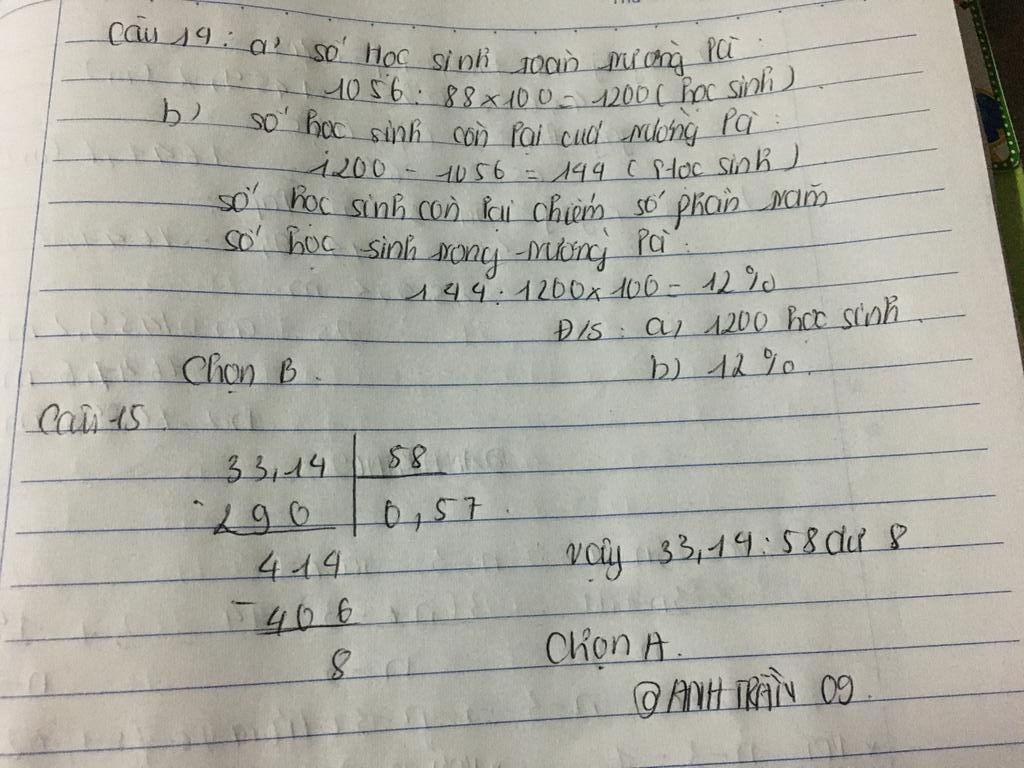 Câu 14: a, số Học sinh toàn trường là:
1056 : 88 x 100 = 1200 (học sinh)
b) số học sinh còn lại của trường là:
1200 - 1056 = 144 (Học sinh)
số học sinh còn lại chiếm số phần trăm
số học sinh trong trường là:
144 : 1200 x 100 = 12%
Đ/S : a, 1200 học sinh
Chọn B. b) 12%.
Câu 15
33,14 58
- 290 0,57.
414 vậy 33,14 : 58 dư 8
- 406
8 Chọn A.
@ANH TRẦN 09.